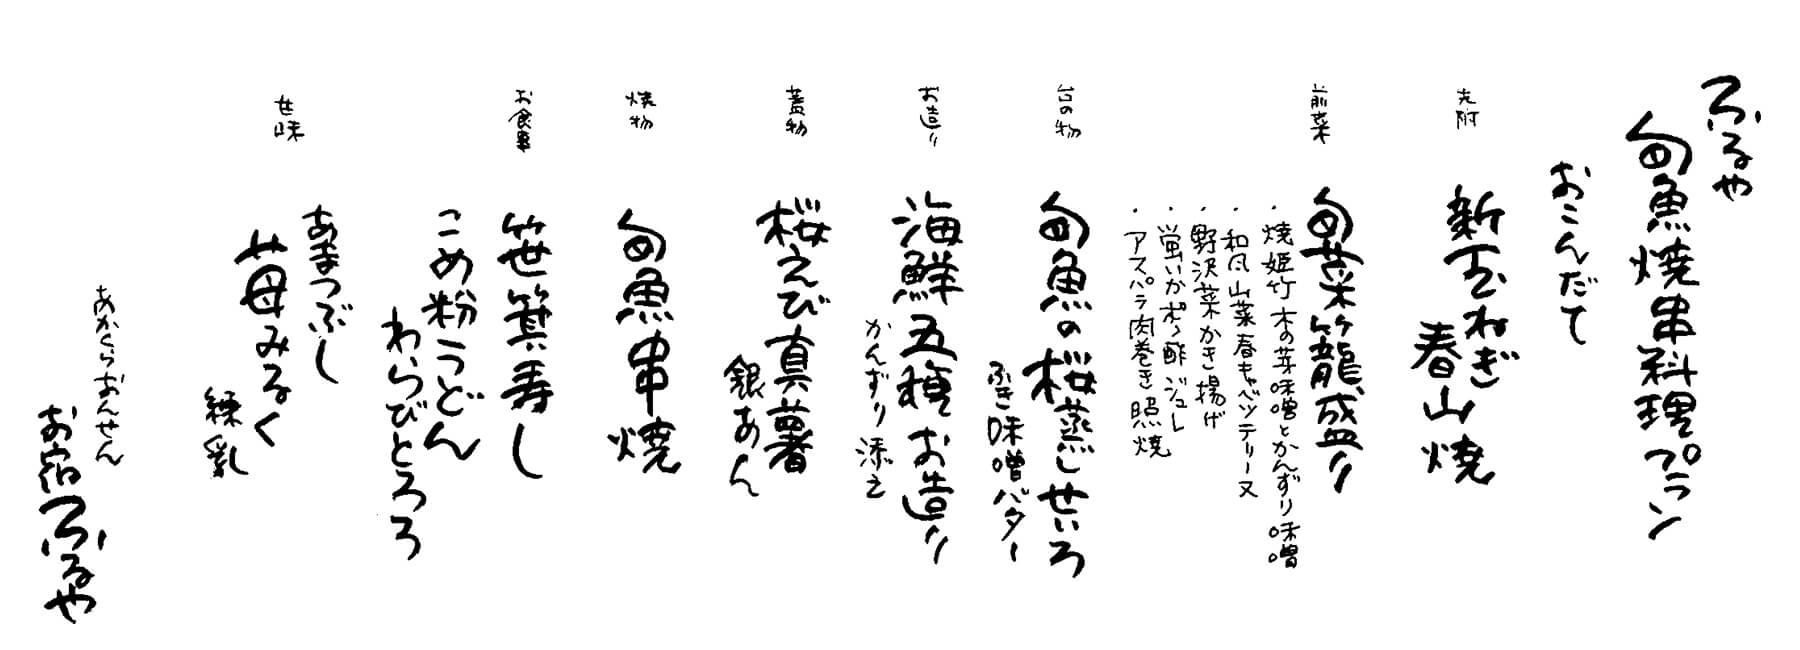 ふるや
旬魚焼串料理プラン
おこんだて
先附
新玉ねぎ
春山焼
前菜
旬菜籠盛り
・焼姫竹 木の芽味噌とかんずり味噌
・和風山菜春キャベツテリーヌ
・野沢菜かき揚げ
・蛍いかポン酢ジュレ
・アスパラ肉巻き照焼
台の物
旬魚の桜蒸しせいろ
ふき味噌バター
お造り
海鮮五種お造り
かんずり添え
蓋物
桜えび真薯
銀あん
焼物
旬魚串焼
お食事
笹箕寿し
こめ粉うどん
わらびとろろ
甘味
あまつぶし
苺みるく
練乳
あかくらおんせん
お宿ふるや